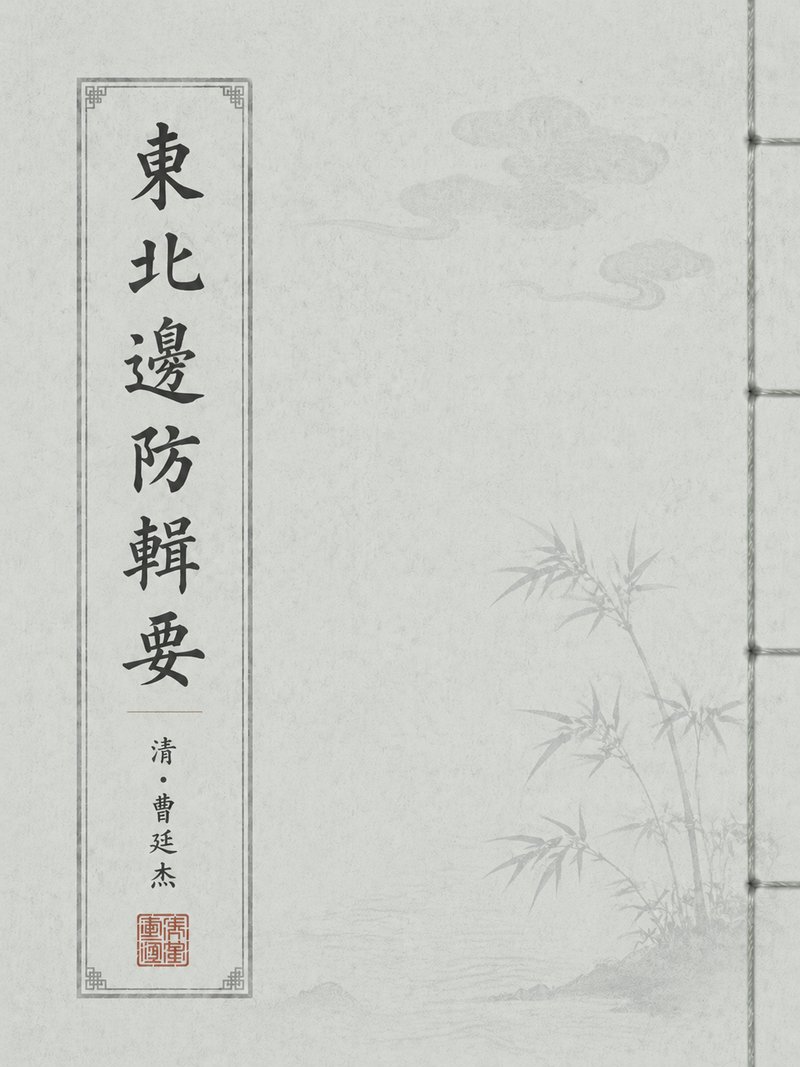 東北邊防輯要
清·曹廷杰